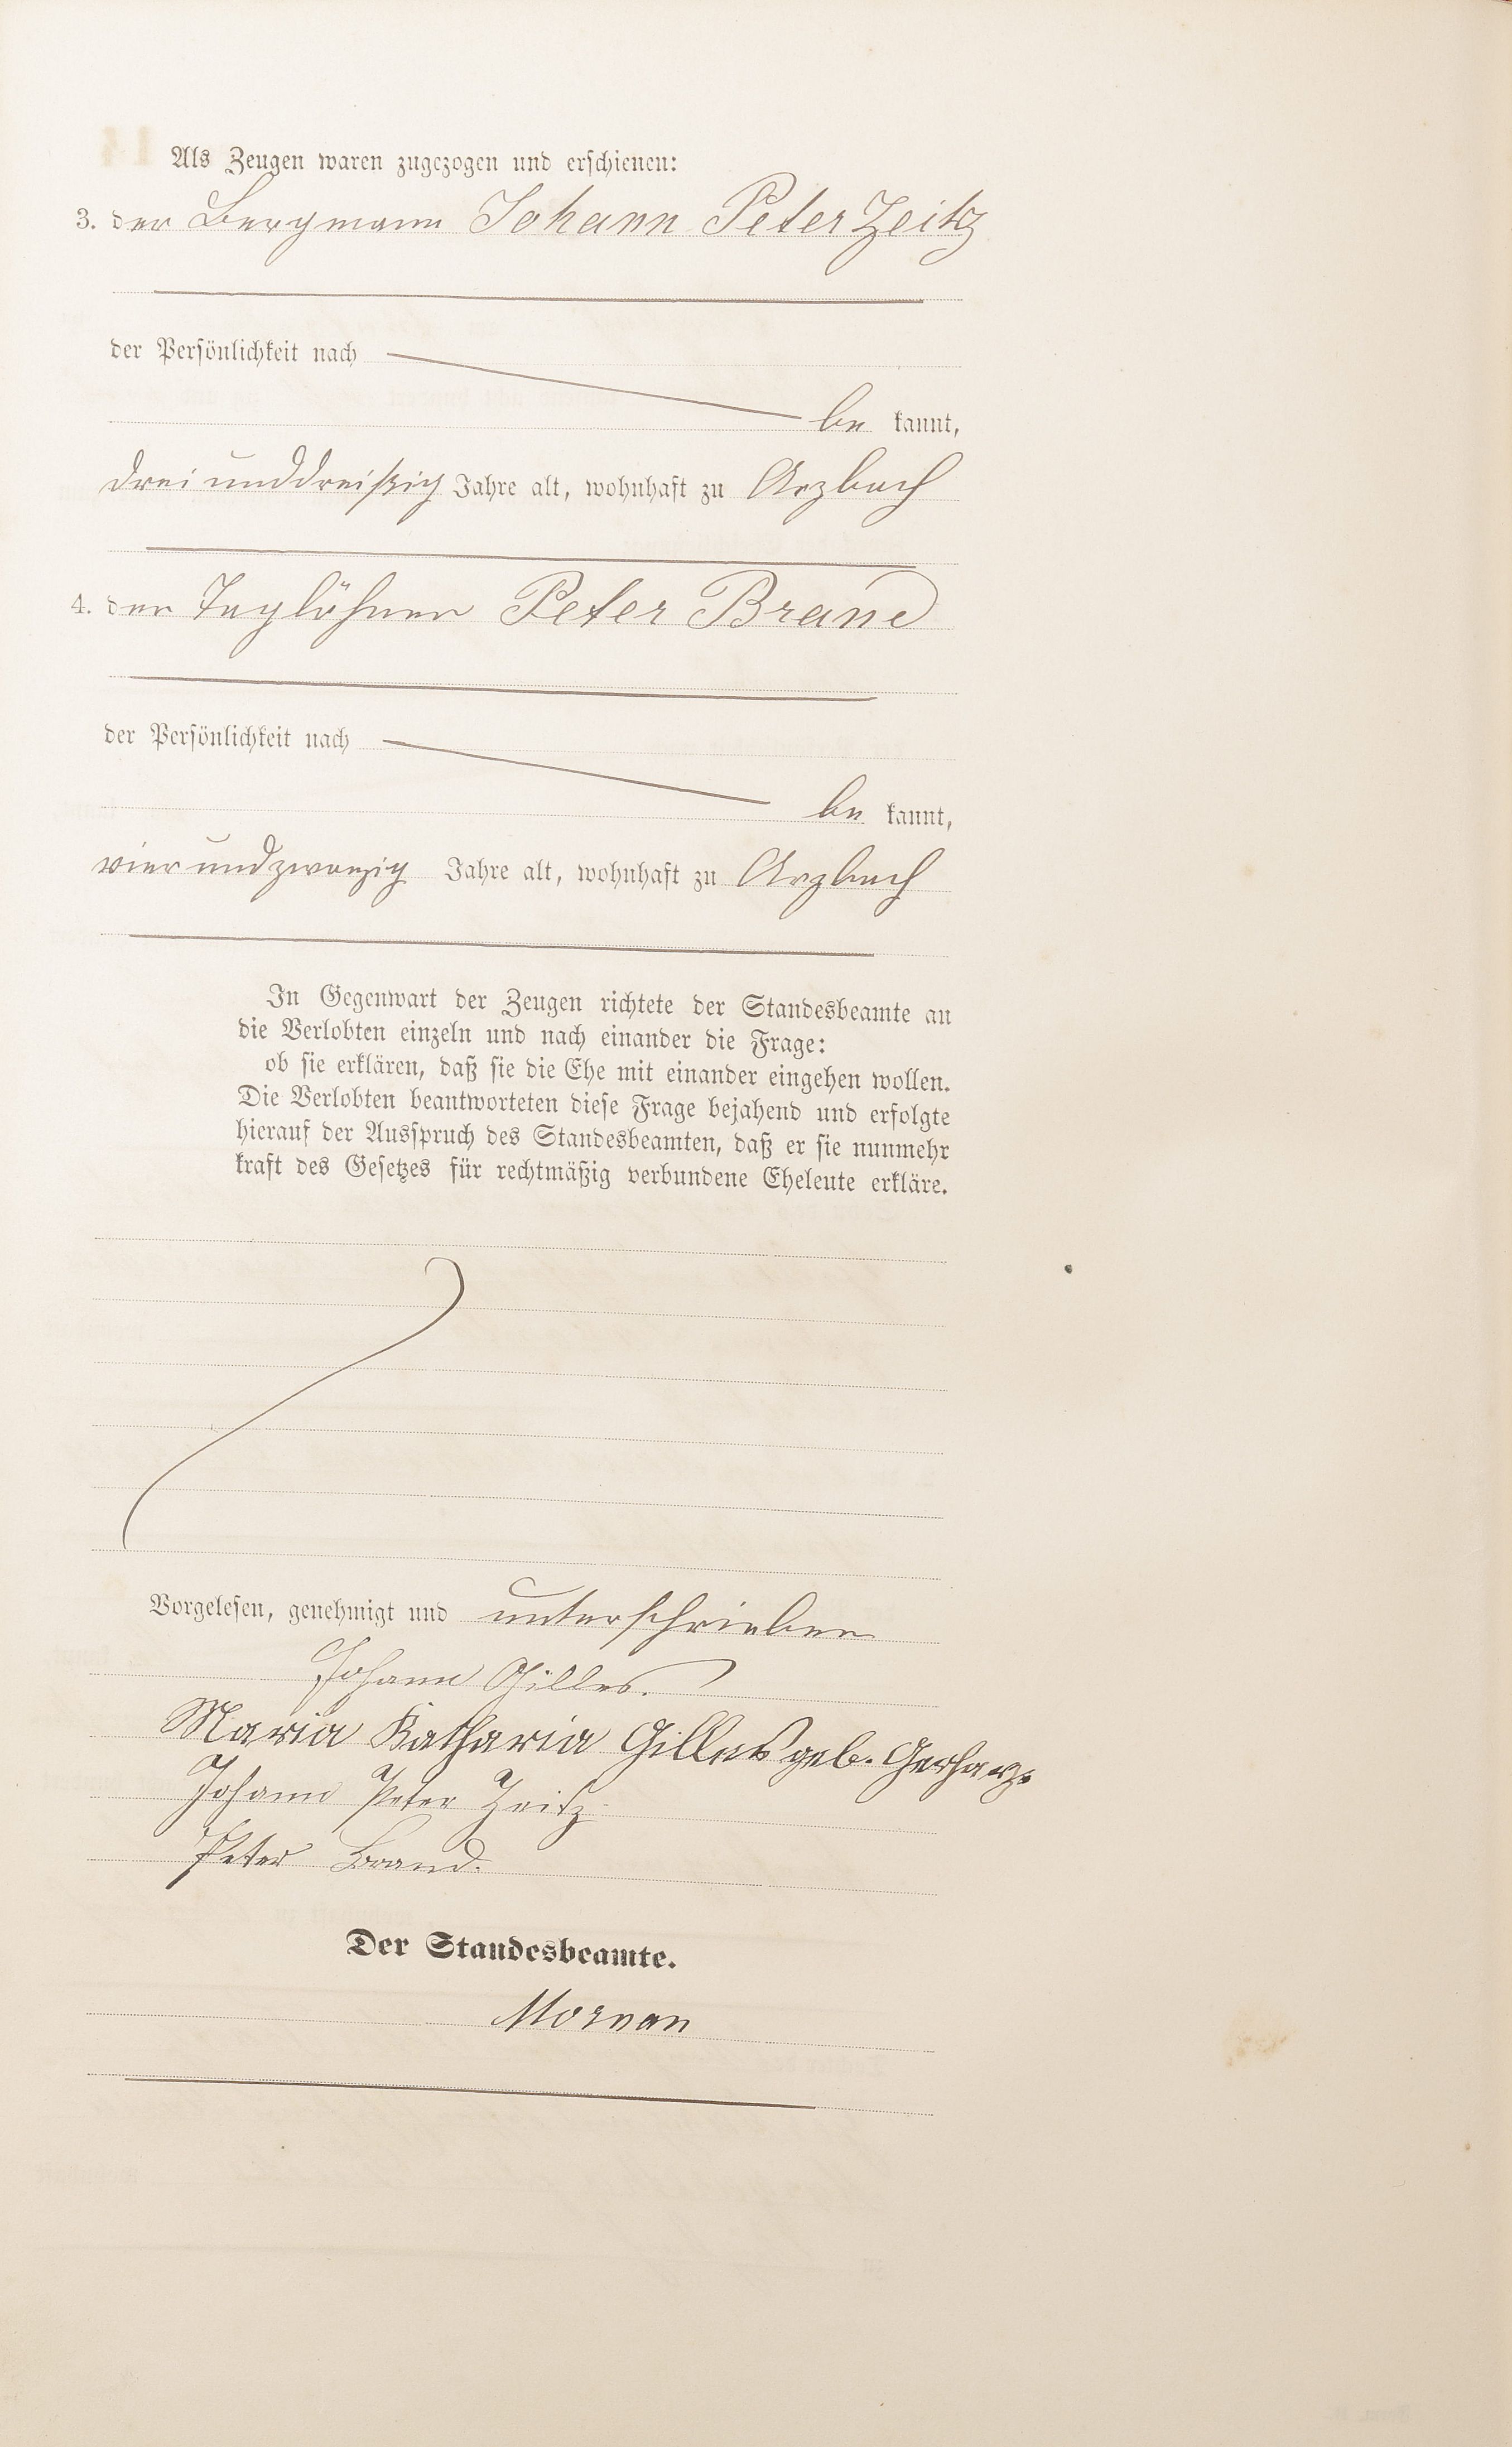 Als Zeugen waren zugezogen und erschienen:
3. der Bergmann Johann Peter Zeitz
der Persönlichkeit nach
be kannt,
drei unddreißig Jahre alt, wohnhaft zu Arzbach
4. der Taglöhner Peter Brand
der Persönlichkeit nach
be kannt,
vier undzwanzig Jahre alt, wohnhaft zu Arzbach
In Gegenwart der Zeugen richtete der Standesbeamte an
die Verlobten einzeln und nach einander die Frage:
ob sie erklären, daß sie die Ehe mit einander eingehen wollen.
Die Verlobten beantworteten diese Frage bejahend und erfolgte
hierauf der Ausspruch des Standesbeamten, daß er sie nunmehr
kraft des Gesetzes für rechtmäßig verbundene Eheleute erkläre.
Vorgelesen, genehmigt und unterschrieben
Johann Gilles.
Maria Katharia Gilles geb. Gerharz.
Johann Peter Zeitz
Peter Brand.
Der Standesbeamte.
Morvan